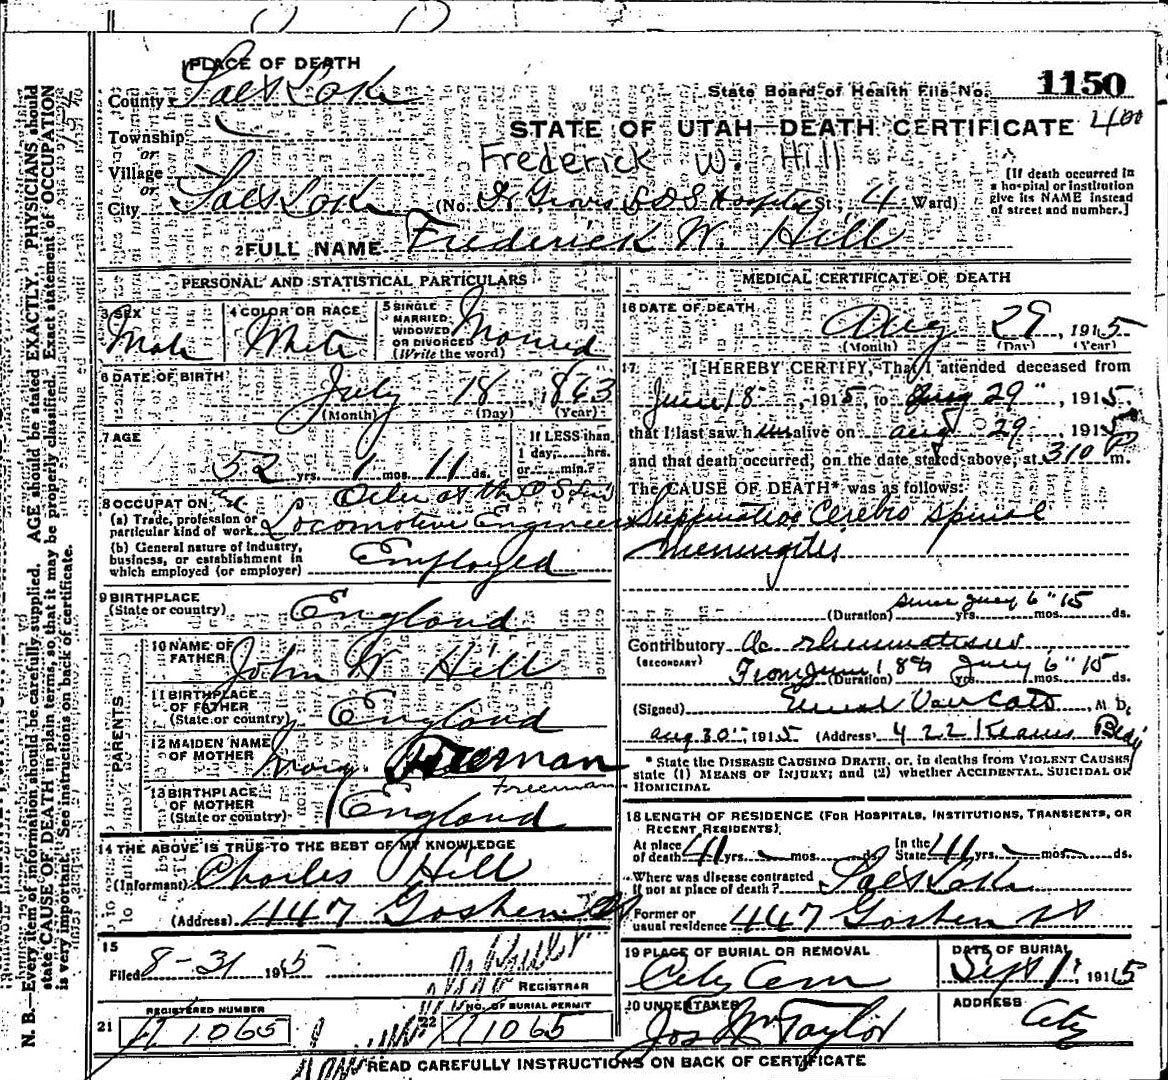 1 PLACE OF DEATH
County Salt Lake
State Board of Health File No. 1150
Township
or
Village
or
STATE OF UTAH—DEATH CERTIFICATE 400
Frederick W. Hill
City Salt Lake (No. Dr Groves L D S Hospital St., 4 Ward)
[If death occurred in
a hospital or institution
give its NAME instead
of street and number.]
2 FULL NAME Frederick W. Hill
PERSONAL AND STATISTICAL PARTICULARS
3 SEX
Male
4 COLOR OR RACE
White
5 SINGLE
MARRIED,
WIDOWED
OR DIVORCED
(Write the word)
Married
6 DATE OF BIRTH
July 18, 1863
(Month) (Day) (Year)
7 AGE
52 yrs. 1 mos. 11 ds.
If LESS than
1 day, hrs.
or min.?
8 OCCUPATION
(a) Trade, profession or
particular kind of work
Locomotive Engineer
(b) General nature of industry,
business, or establishment in
which employed (or employer)
Employed
9 BIRTHPLACE
(State or country)
England
PARENTS
10 NAME OF
FATHER
John W Hill
11 BIRTHPLACE
OF FATHER
(State or country)
England
12 MAIDEN NAME
OF MOTHER
Mary Freeman
Freeman
13 BIRTHPLACE
OF MOTHER
(State or country)
England
14 THE ABOVE IS TRUE TO THE BEST OF MY KNOWLEDGE
(Informant) Charles Hill
(Address) 447 Goshen St
15
Filed 8-31 1915
REGISTRAR
REGISTERED NUMBER
21 H 1065
NO. OF BURIAL PERMIT
22 H 1065
MEDICAL CERTIFICATE OF DEATH
16 DATE OF DEATH
Aug 29, 1915
(Month) (Day) (Year)
17 I HEREBY CERTIFY, That I attended deceased from
June 18, 1915, to Aug 29", 1915,
that I last saw him alive on Aug 29 1915
and that death occurred, on the date stated above, at 310 P m.
The CAUSE OF DEATH* was as follows:
Suppurative Cerebro Spinal
Meningitis
(Duration) since July 6" 15 yrs. mos. ds.
Contributory Ac rheumatism
(SECONDARY)
From June 18th July 6" 15
(Duration) yrs. mos. ds.
(Signed) M. D.
Aug 30" 1915 (Address) 422 Kearns Bldg
* State the DISEASE CAUSING DEATH, or, in deaths from VIOLENT CAUSES
state (1) MEANS OF INJURY; and (2) whether ACCIDENTAL, SUICIDAL OR
HOMICIDAL
18 LENGTH OF RESIDENCE (FOR HOSPITALS, INSTITUTIONS, TRANSIENTS, OR
RECENT RESIDENTS)
At place
of death 41 yrs. mos. ds.
In the
State 41 yrs. mos. ds.
Where was disease contracted
if not at place of death? Salt Lake
Former or
usual residence 447 Goshen St
19 PLACE OF BURIAL OR REMOVAL
City Cem
DATE OF BURIAL
Sept 1, 1915
20 UNDERTAKER
Jos Wm Taylor
ADDRESS
City
READ CAREFULLY INSTRUCTIONS ON BACK OF CERTIFICATE
N. B.—Every item of information should be carefully supplied. AGE should be stated EXACTLY. PHYSICIANS should
state CAUSE OF DEATH in plain terms, so that it may be properly classified. Exact statement of OCCUPATION
is very important. See instructions on back of certificate.